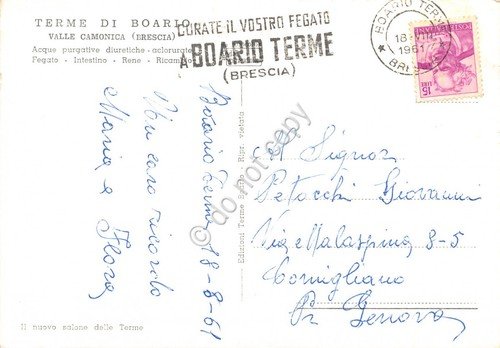 TERME DI BOARIO
VALLE CAMONICA (BRESCIA)
Acque purgative diuretiche - aclorurate
Fegato - Intestino - Rene - Ricambio
CURATE IL VOSTRO FEGATO
A BOARIO TERME
(BRESCIA)
BOARIO TERME
18-VIII
1961
BRESCIA
LIRE 15
Boario Terme 18-8-61
Un caro ricordo
Maria e Flora
Edizioni Terme
Ripr. vietata
Al Signor
Petacchi Giovanni
Via Malaspina 8-5
Cornigliano
Pr Genova
Il nuovo salone delle Terme
© do not copy